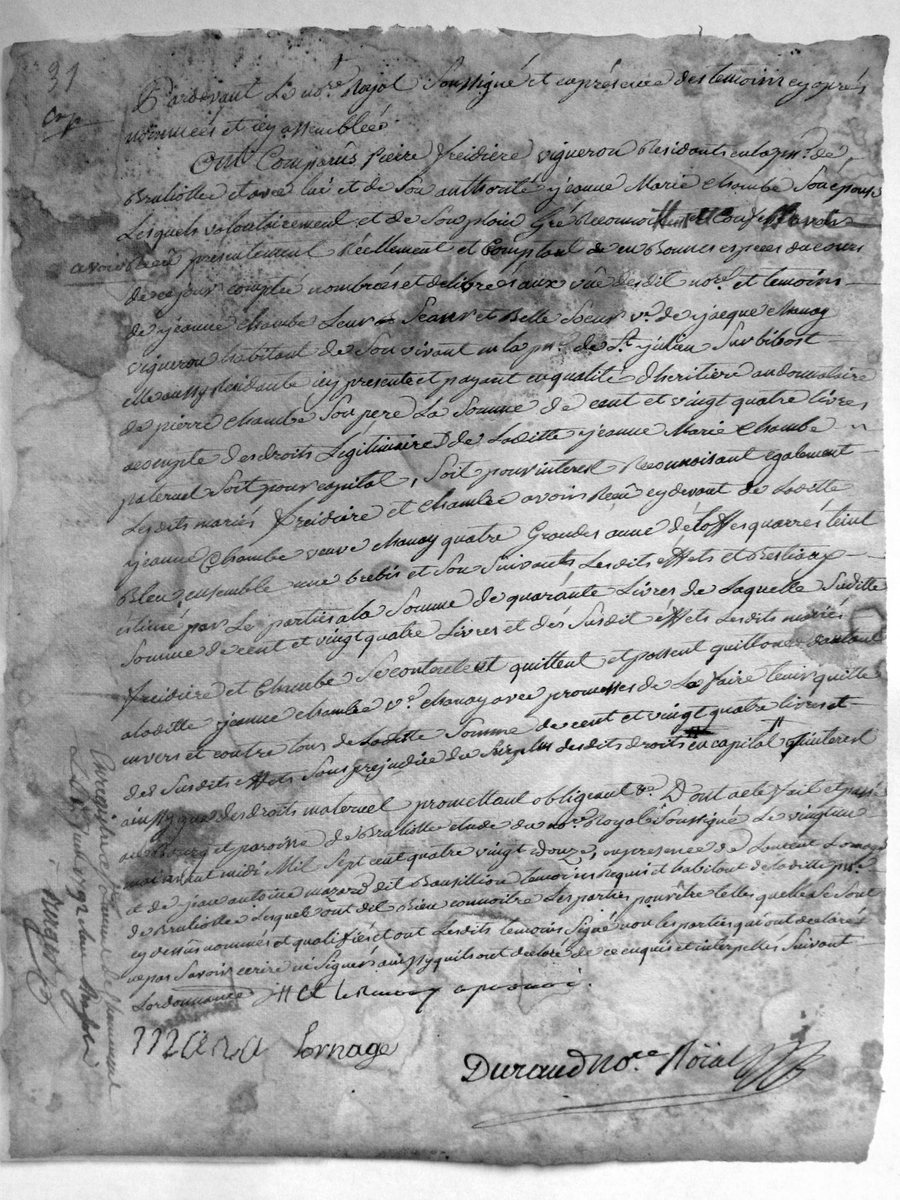 31
Pardevant Le no.re Royal Soussigné et en présence des temoins cy après
nommées et icy assemblées
Ont Comparûs pierre freidière vigneron Residants en la p.se de
Brulliolle et avec lui et de Son authorité jeanne Marie Chambe Son épouse
Lesquels volontairement et de Son plain Gré Reconnoissent et Confessent
avoir Recû presentement Réellement et Comptant de en Bonnes espèces du cours
de ce jour comptée nombrées et délibrées aux vûe desdit no.re et temoins
de jeanne Chambe Leur Seaur et Belle Soeur v.e de jacque Chanay
vigneron habitant de Son vivant en la p.se de S.t julien Sur bibost
elle aussy Residante icy presente et payant en qualité d'héritière
de pierre Chambe Son pere La Somme de cent et vingt quatre livres
acompte des droits Légitimaire de Laditte jeanne Marie Chambe
paternel Soit pour capital, Soit pour interest Reconnoisant également
Lesdits mariés freidière et Chambe avoir Recû cy devant de Laditte
jeanne Chambe veuve Chanay quatre Grandes aune quarrés teint
Bleu, ensemble une brebis et Son Suivants Lesdits éffets et Bestiaux
estimé par Le parties a la Somme de quarante Livres de Laquelle Suditte
Somme de cent et vingt quatre Livres et des Susdit éffets Lesdits mariés
freidière et Chambe Se contentent quittent et passent quittance
a laditte jeanne Chambe v.e Chanay avec promesses de La faire tenir quitte
envers et contre tous de Laditte Somme de cent et vingt quatre livres et
des Susdits éffets Sans prejudice du Surplus desdits droits en capital et interest
ainsy que des droits maternel promettant obligeant &c. Dont acte fait et passé
au Bourg et paroisse de Brulliolle étude du no.re Royal Soussigné Le vingt un
mai avant midi Mil Sept cent quatre vingt douze, en presence de Laurent Lornage
et de jean antoine mazard dit temoins Requis et habitant de laditte p.se
de Brulliolle Lesquel ont dit Bien connoitre Les parties pour être telles quelle Se Sont
cy dessus nommés et qualifiés et ont Lesdits temoins Signé non les parties qui ont declaré
ne pas Savoir écrire ni Signer ainsy quils ont declaré de ce enquis et interpellés Suivant
Lordonnance
Maza Lornage
Durand no.re Roïal